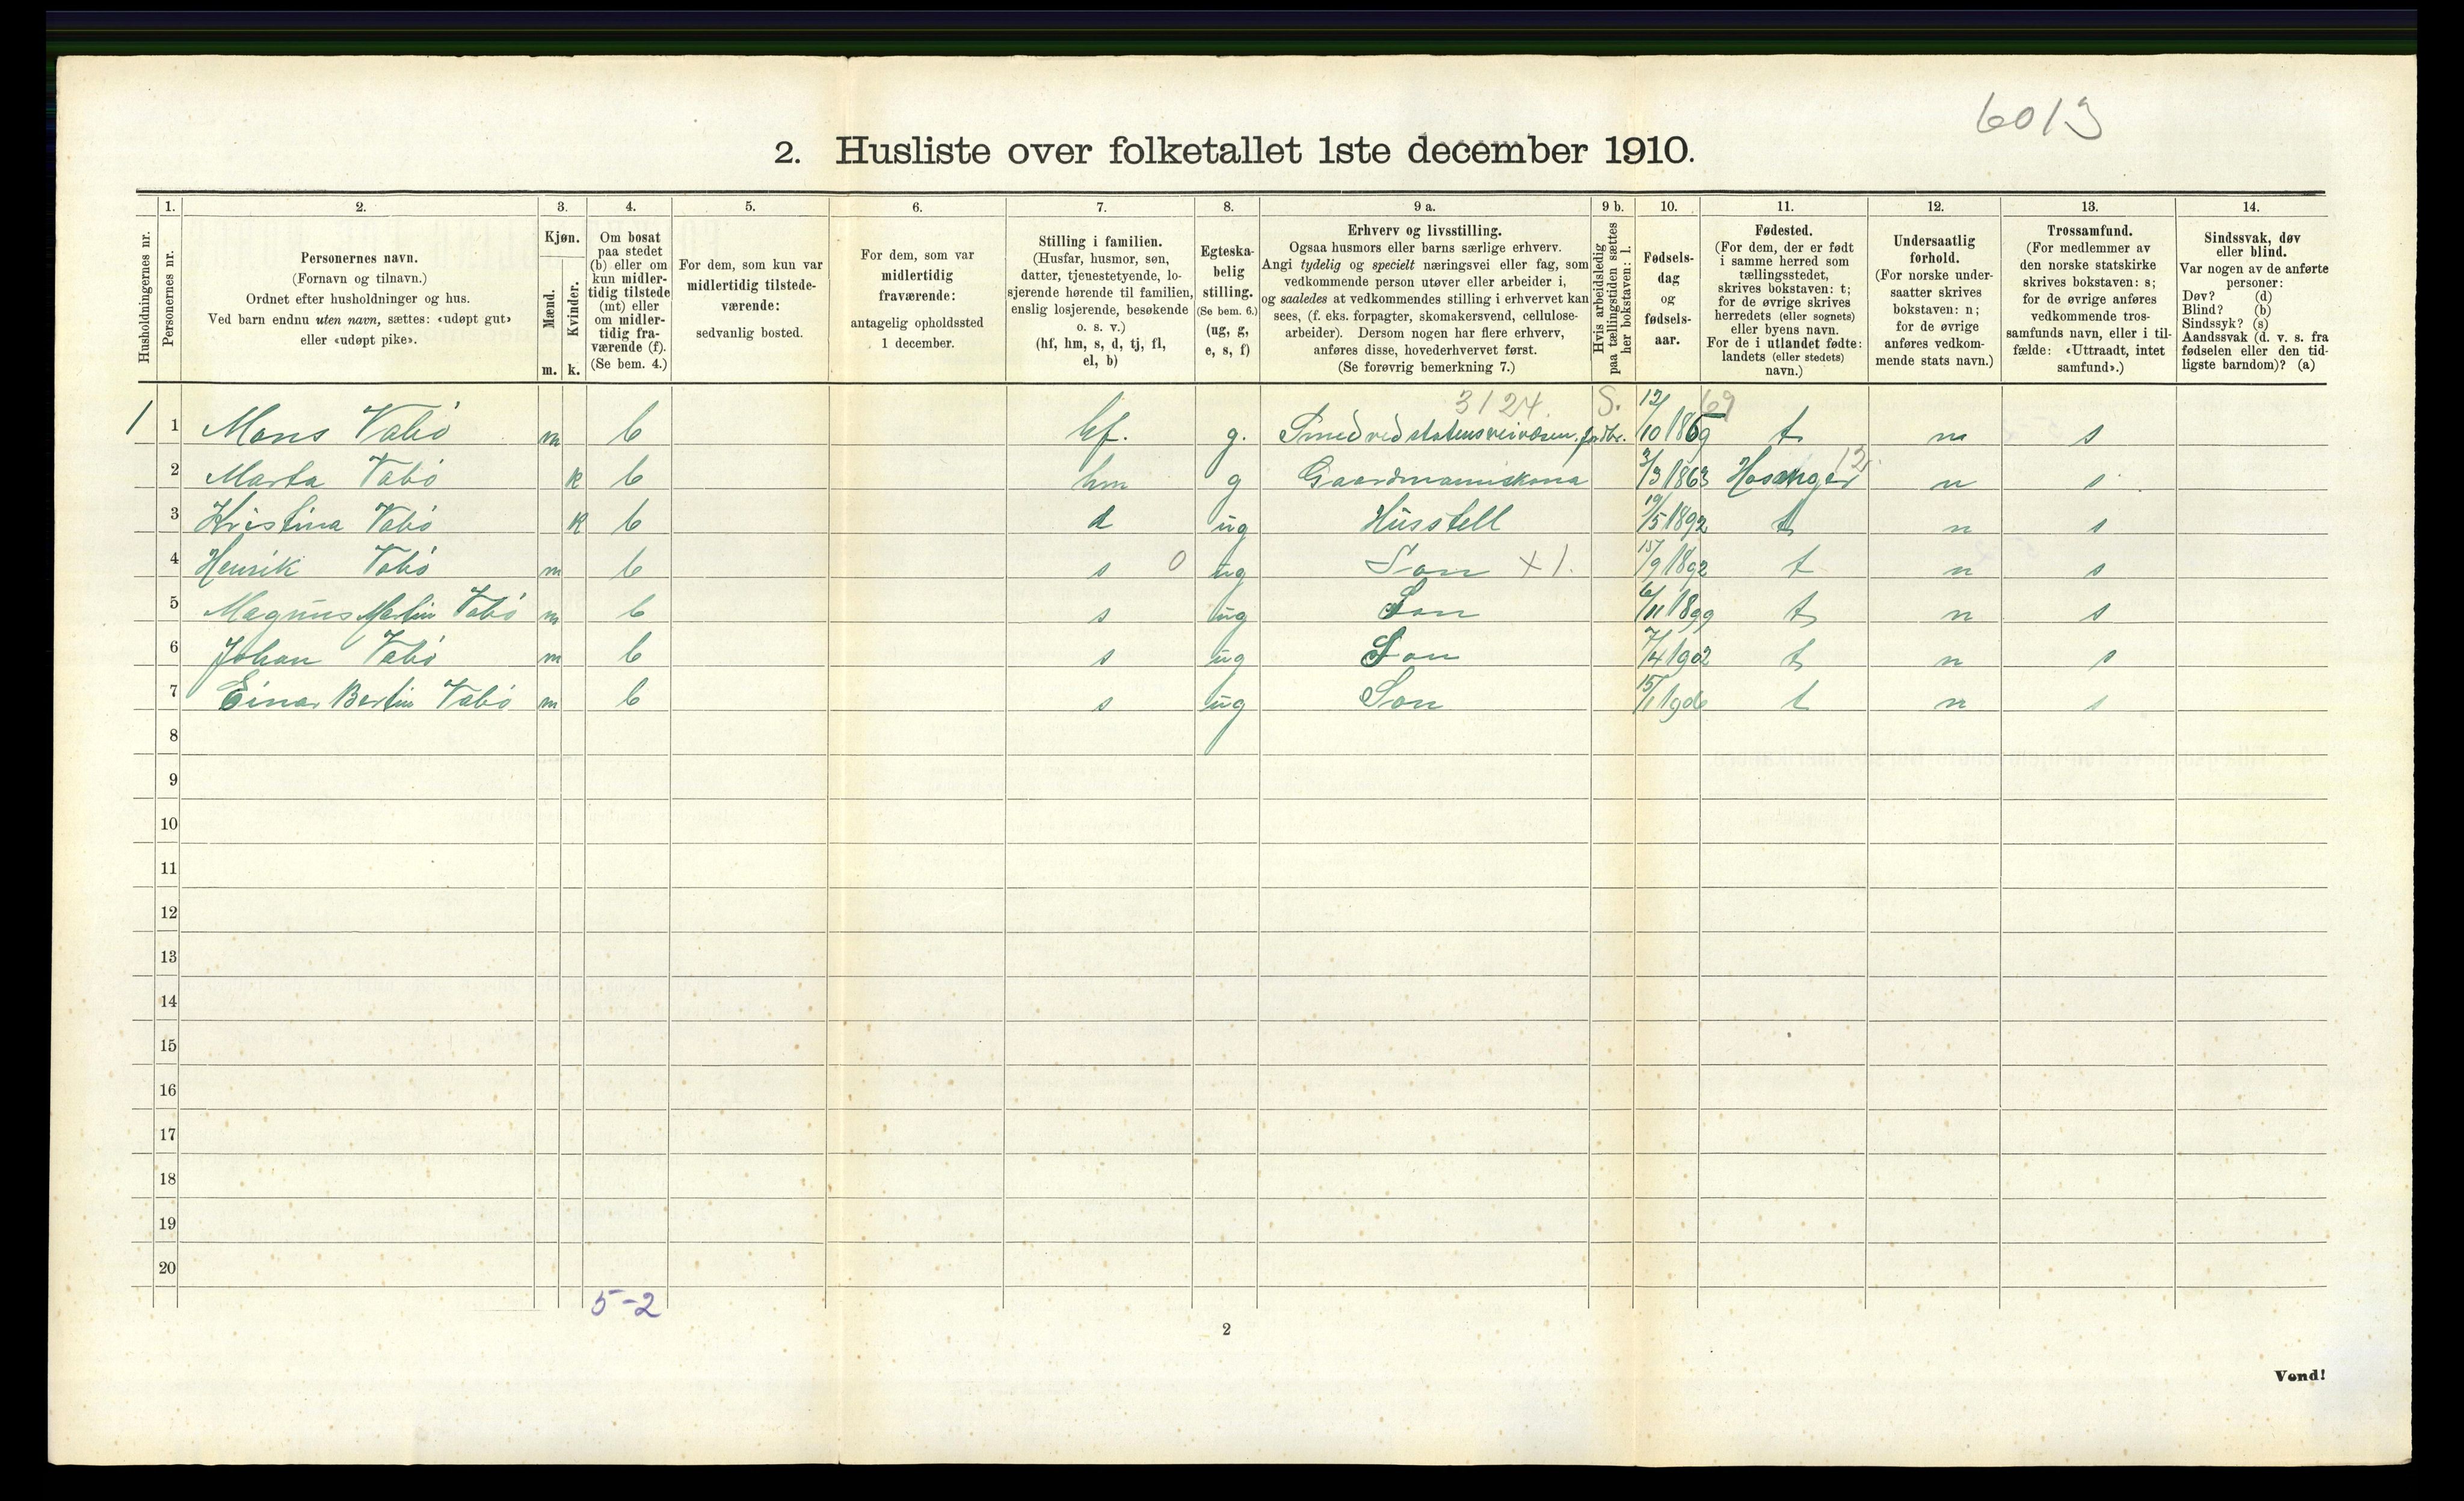 6013
2. Husliste over folketallet 1ste december 1910.
Husholdningernes nr.
1. 2. 3. 4. 5. 6. 7. 8. 9 a. 9 b. 10. 11. 12. 13. 14.
Personernes nr.
Personernes navn.
(Fornavn og tilnavn.)
Ordnet efter husholdninger og hus.
Ved barn endnu uten navn, sættes: «udøpt gut»
eller «udøpt pike».
Kjøn.
Mænd.
Kvinder.
m. k.
Om bosat
paa stedet
(b) eller om
kun midler-
tidig tilstede
(mt) eller
om midler-
tidig fra-
værende (f).
(Se bem. 4.)
For dem, som kun var
midlertidig tilstede-
værende:
sedvanlig bosted.
For dem, som var
midlertidig
fraværende:
antagelig opholdssted
1 december.
Stilling i familien.
(Husfar, husmor, søn,
datter, tjenestetyende, lo-
sjerende hørende til familien,
enslig losjerende, besøkende
o. s. v.)
(hf, hm, s, d, tj, fl,
el, b)
Egteska-
belig
stilling.
(Se bem. 6.)
(ug, g,
e, s, f)
Erhverv og livsstilling.
Ogsaa husmors eller barns særlige erhverv.
Angi tydelig og specielt næringsvei eller fag, som
vedkommende person utøver eller arbeider i,
og saaledes at vedkommendes stilling i erhvervet kan
sees, (f. eks. forpagter, skomakersvend, cellulose-
arbeider). Dersom nogen har flere erhverv,
anføres disse, hovederhvervet først.
(Se forøvrig bemerkning 7.)
Hvis arbeidsledig
paa tællingstiden sættes
her bokstaven: l.
Fødsels-
dag
og
fødsels-
aar.
Fødested.
(For dem, der er født
i samme herred som
tællingsstedet,
skrives bokstaven: t;
for de øvrige skrives
herredets (eller sognets)
eller byens navn.
For de i utlandet fødte:
landets (eller stedets)
navn.)
Undersaatlig
forhold.
(For norske under-
saatter skrives
bokstaven: n;
for de øvrige
anføres vedkom-
mende stats navn.)
Trossamfund.
(For medlemmer av
den norske statskirke
skrives bokstaven: s;
for de øvrige anføres
vedkommende tros-
samfunds navn, eller i til-
fælde: «Uttraadt, intet
samfund».)
Sindssvak, døv
eller blind.
Var nogen av de anførte
personer:
Døv? (d)
Blind? (b)
Sindssyk? (s)
Aandssvak (d. v. s. fra
fødselen eller den tid-
ligste barndom)? (a)
3124. S. 69
1 1 Mons Vabö m b hf. g. Smed ved statens veivæsen. 12/10 1869 t n s
2 Marta Vabö k b hm g Gaardmannskona 3/3 1863 Hosanger 12. n s
3 Kristina Vabö k b d ug Husstell 19/5 1892 t n s
4 Henrik Vabö m b s 0 ug Son X1. 15/9 1892 t n s
5 Magnus Martin Vabö m b s ug Son 6/11 1899 t n s
6 Johan Vabö m b s ug Son 7/4 1902 t n s
7 Einar Bertin Vabö m b s ug Son 15/1 1906 t n s
8
9
10
11
12
13
14
15
16
17
18
19
20
5-2
2
Vend!